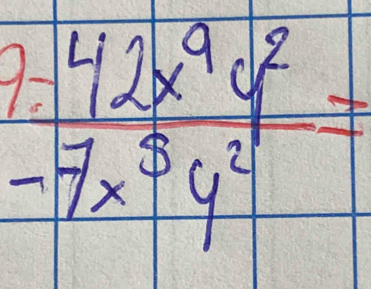 9-
42x⁹y²
=
-7x⁵y²